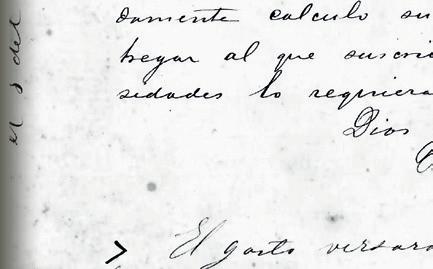 damente calculo su
tregar al que suscri
sidades lo requiera
Dios
El gasto versara
el 3 del